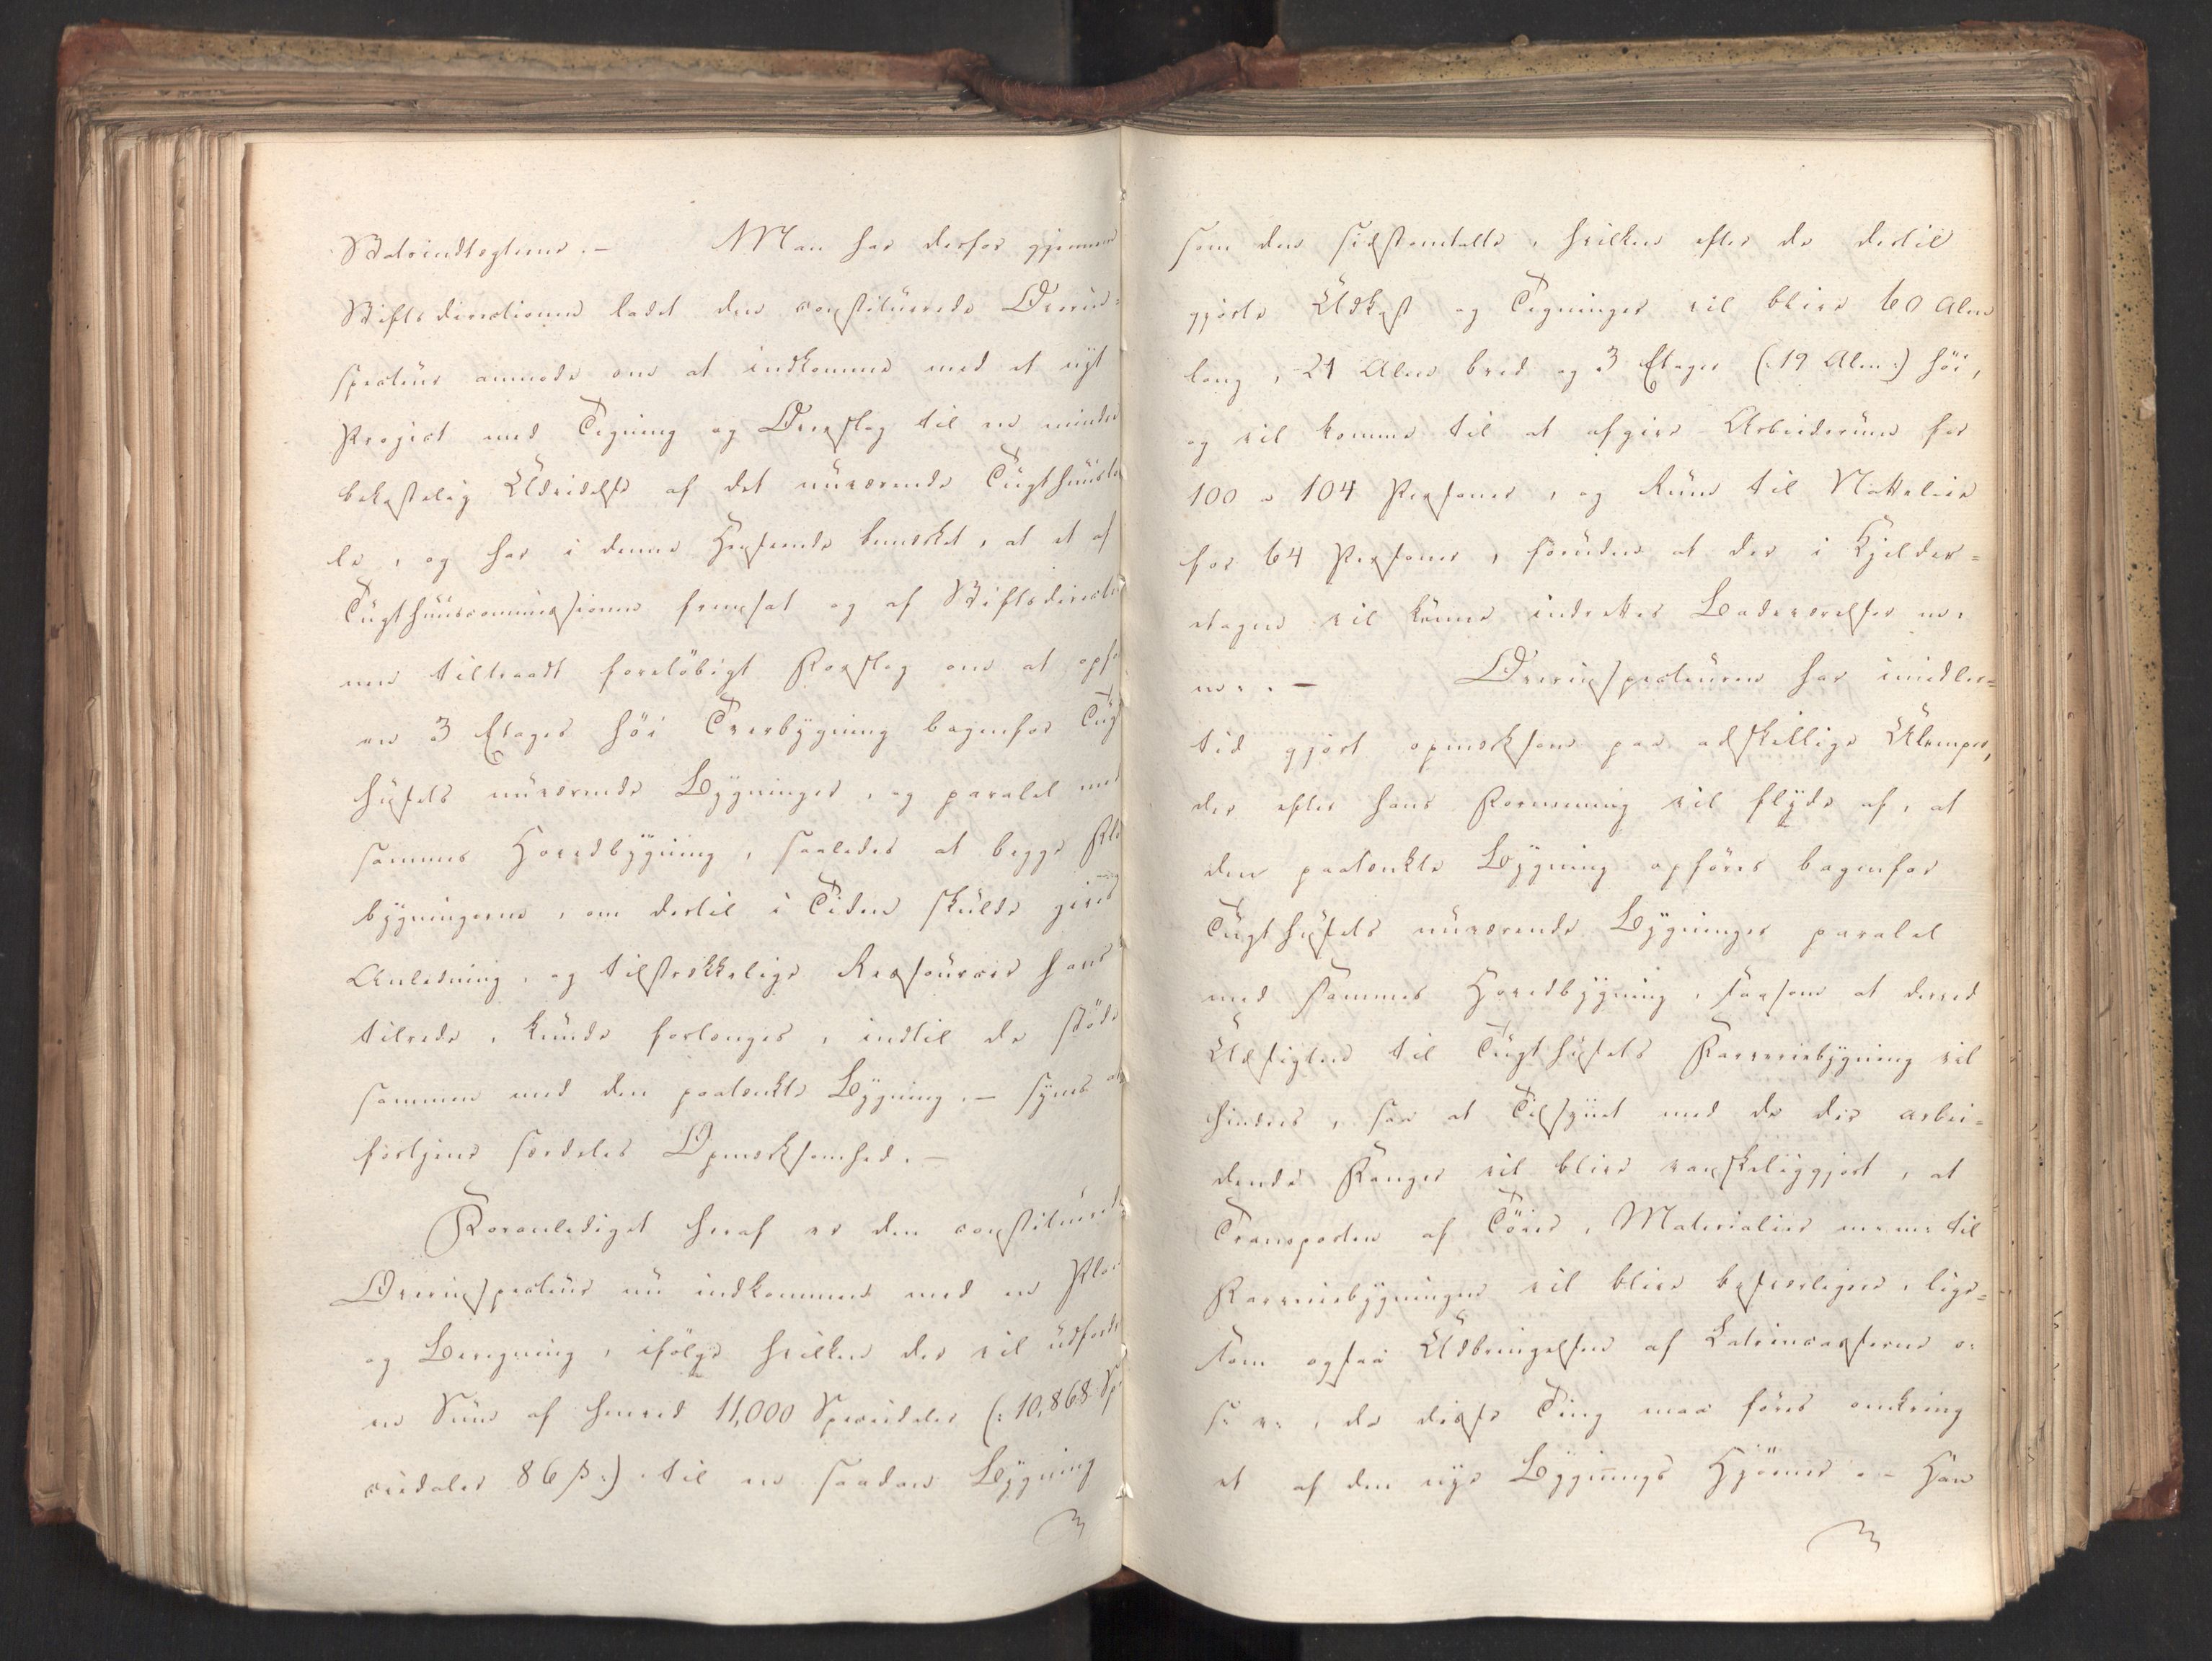 Statsindtægterne. – Man har derfor gjennem
Stiftsdirectionen ladet den constituerede Overin=
specteur anmode om at indkomme med et nyt
Project med Tegning og Overslag til en mindre
bekostelig Udvidelse af det nuværende Tugthuuslo
le, og har i denne Henseende bemærket, at et af
Tugthuuscommissionen fremsat og af Stiftsdirectio
nen tiltraadt foreløbigt Forslag om at opfø
en 3 Etages høi Tverbygning bagenfor Tugt
husets nuværende Bygninger, og paralel med
sammes Hovedbygning, saaledes at begge Flø
bygningerne, om dertil i Tiden skulde gives
Anledning, og tilstrækkelige Ressourcer haves
tilrede, kunde forlænges, indtil de støde
sammen med den paatænkte Bygning. – synes at
fortjene særdeles Opmærksomhed. –
Foranlediget heraf er den constituerede
Overinspecteur nu indkommen med en Plan
og Beregning, ifølge hvilken der vil udfordr
en Sum af henved 11,000 Speciedaler (: 10,868 Sp
ciedaler 86 ß :) til en saadan Bygning
som den sidstomtalte, hvilken efter de dertil
gjorte Udkast og Tegninger vil blive 60 Alen
lang, 21 Alen bred og 3 Etager (: 19 Alen :) høi,
og vil komme til at afgive Arbeidsrum for
100 a 104 Personer, og Rum til Natteleie
for 64 Personer, foruden at der i Kjelder=
etagen vil kunne indrettes Badeværelser m.
m. . – Overinspecteuren har imidler=
tid gjort opmærksom paa adskillige Ulemper,
der efter hans Formening vil flyde af, at
den paatænkte Bygning opføres bagenfor
Tugthusets nuværende Bygninger paralel
med sammes Hovedbygning, saasom at derved
Udsigten til Tugthusets Farveriebygning vil
hindres, saa at Tilsynet med de der arbei=
dende Fanger vil blive vanskeliggjort, at
Transporten af Tøier, Materialier m: m: til
Farveriebygningen vil blive besværligere, lige=
som ogsaa Udbringelsen af Latrincasserne o:
s: v:, da disse Ting maa føres omkring
et af den nye Bygnings Hjørner. – Han